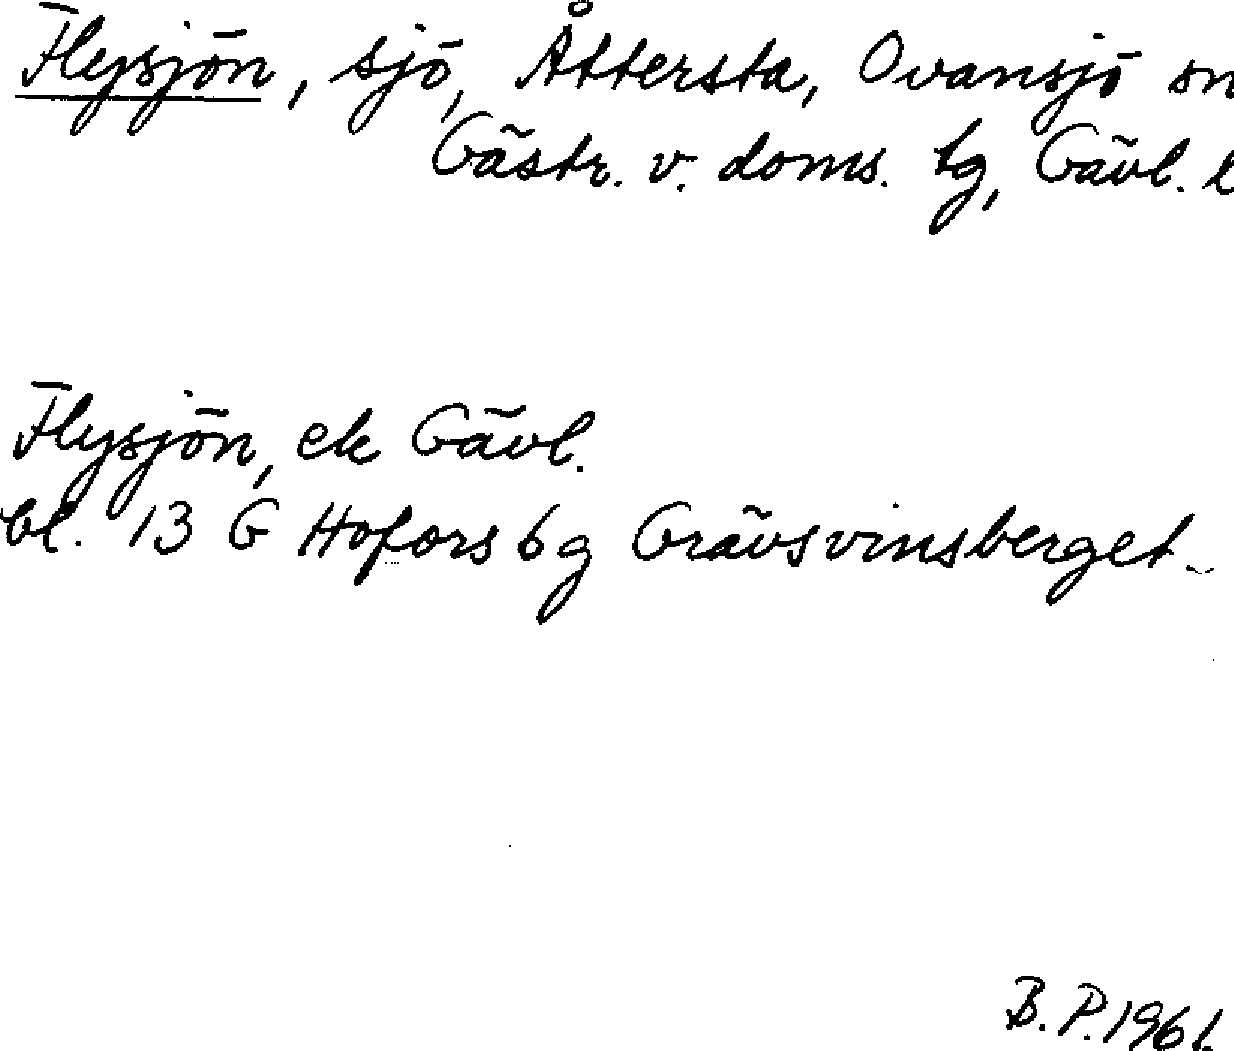 Flysjön, sjö, Åttersta, Ovansjö sn
Gästr. v. doms. tg, Gävl. l
Flysjön, ek Gävl.
bl. 13 G Hofors 6g Grävsvinsberget.
B.P. 1961.